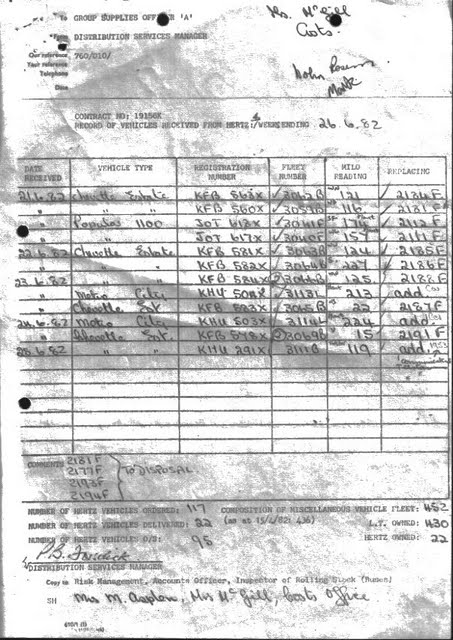 To GROUP SUPPLIES OFFICER 'A'
Mrs. McGill
Costs.
From DISTRIBUTION SERVICES MANAGER
Our reference 760/010/
Your reference
Telephone
Date
CONTRACT NO: 19156K
RECORD OF VEHICLES RECEIVED FROM HERTZ: WEEK ENDING 26.6.82
DATE RECEIVED VEHICLE TYPE REGISTRATION NUMBER FLEET NUMBER MILO READING REPLACING
21.6.82 Chevette Estate KFB 563X 3062B 121 2184F
" " " KFB 560X 3059B 116 2181F
" Popular 1100 JOT 618X 3041F 174 2112F
" " JOT 617X 3040F 157 2111F
22.6.82 Chevette Estate KFB 581X 3063B 124 2185F
" " " KFB 582X 3064B 227 2186F
23.6.82 " " KFB 584X 3066B 125 2188F
" Metro City KHU 508X 3113L 213 add
" Chevette Est. KFB 583X 3065B 22 2187F
24.6.82 Metro City KHU 503X 3114L 224 add
" Chevette Est. KFB 598X 3069B 15 2191F
25.6.82 " " KHU 291X 3111B 119 add
COMMENTS 2181F
2177F
2193F
2194F
TO DISPOSAL
NUMBER OF HERTZ VEHICLES ORDERED: 117 COMPOSITION OF MISCELLANEOUS VEHICLE FLEET: 452
NUMBER OF HERTZ VEHICLES DELIVERED: 22 (as at 15/4/82: 436) L.T. OWNED: 430
NUMBER OF HERTZ VEHICLES O/S: 95 HERTZ OWNED: 22
DISTRIBUTION SERVICES MANAGER
Copy to Risk Management, Accounts Officer, Inspector of Rolling Stock (Buses)
SH Mrs M. Asplen, Mrs McGill, Costs Office